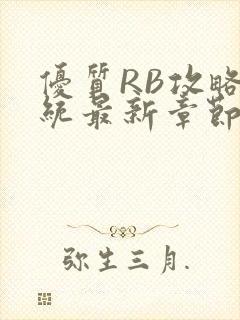 優質RB攻略
統最新章節
弥生三月.